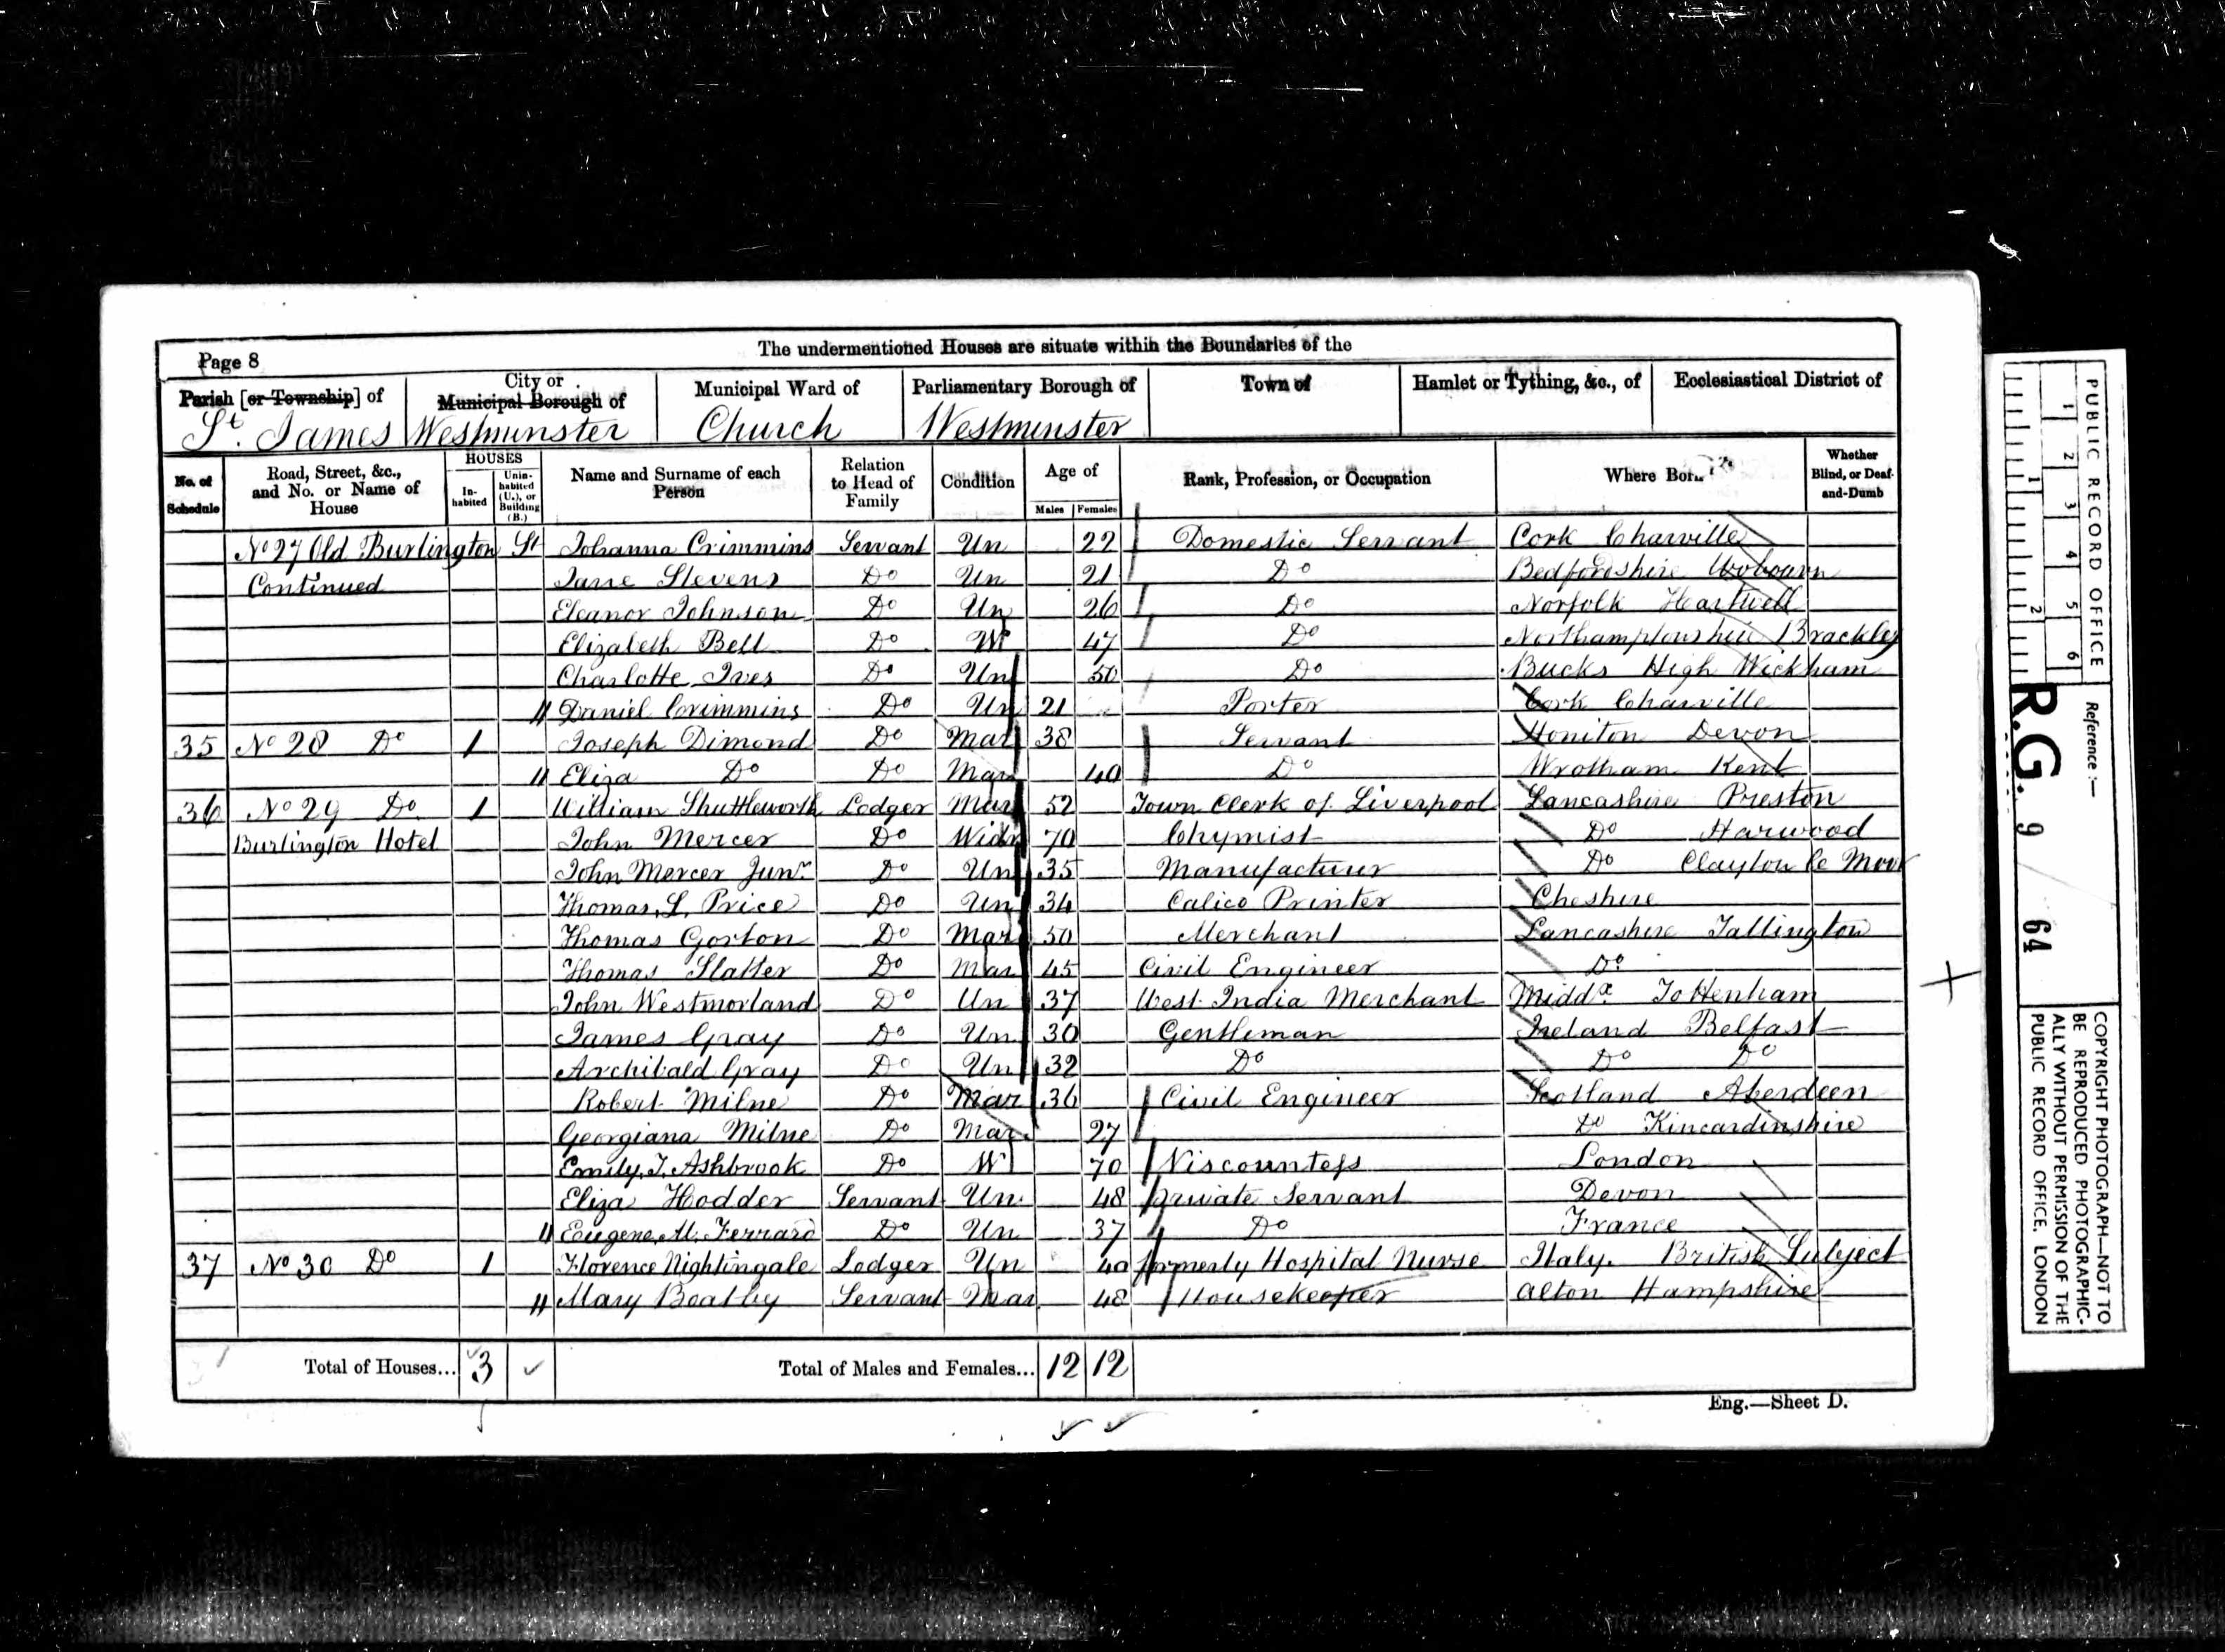 The undermentioned Houses are situate within the Boundaries of the
Page 8
Parish [or Township] of
City or Municipal Borough of
Municipal Ward of
Parliamentary Borough of
Town of
Hamlet or Tything, &c., of
Ecclesiastical District of
St. James Westminster Church Westminster
No. of Schedule
Road, Street, &c., and No. or Name of House
HOUSES
In-habited
Unin-habited (U.), or Building (B.)
Name and Surname of each Person
Relation to Head of Family
Condition
Age of
Males Females
Rank, Profession, or Occupation
Where Born
Whether Blind, or Deaf-and-Dumb
No 27 Old Burlington St Johanna Crimmins Servant Un 22 Domestic Servant Cork Charville
Continued Jane Stevens Do Un 21 Do Bedfordshire Wobourn
Eleanor Johnson Do Un 26 Do Norfolk Hartwell
Elizabeth Bell Do W 47 Do Northamptonshire Brackley
Charlotte Ives Do Un 50 Do Bucks High Wickham
Daniel Crimmins Do Un 21 Porter Cork Charville
35 No 28 Do 1 Joseph Dimond Do Mar 38 Servant Honiton Devon
Eliza Do Do Mar 40 Do Wrotham Kent
36 No 29 Do 1 William Shuttleworth Lodger Mar 52 Town Clerk of Liverpool Lancashire Preston
Burlington Hotel John Mercer Do Widr 70 Chymist Do Harwood
John Mercer Junr Do Un 35 Manufacturer Do Clayton le Moor
Thomas L. Price Do Un 34 Calico Printer Cheshire
Thomas Gorton Do Mar 50 Merchant Lancashire Tallington
Thomas Slatter Do Mar 45 Civil Engineer Do
John Westmorland Do Un 37 West India Merchant Middx Tottenham
James Gray Do Un 30 Gentleman Ireland Belfast
Archibald Gray Do Un 32 Do Do Do
Robert Milne Do Mar 36 Civil Engineer Scotland Aberdeen
Georgiana Milne Do Mar 27 Do Kincardinshire
Emily T. Ashbrook Do W 70 Viscountess London
Eliza Hodder Servant Un 48 private Servant Devon
Eugene M. Ferrard Do Un 37 Do France
37 No 30 Do 1 Florence Nightingale Lodger Un 40 formerly Hospital Nurse Italy. British Subject
Mary Beatby Servant Mar 48 Housekeeper Alton Hampshire
Total of Houses... 3
Total of Males and Females... 12 12
Eng.—Sheet D.
PUBLIC RECORD OFFICE
1 2 3 4 5 6
1 2
Reference :—
R.G. 9 64
COPYRIGHT PHOTOGRAPH—NOT TO
BE REPRODUCED PHOTOGRAPHIC-
ALLY WITHOUT PERMISSION OF THE
PUBLIC RECORD OFFICE, LONDON